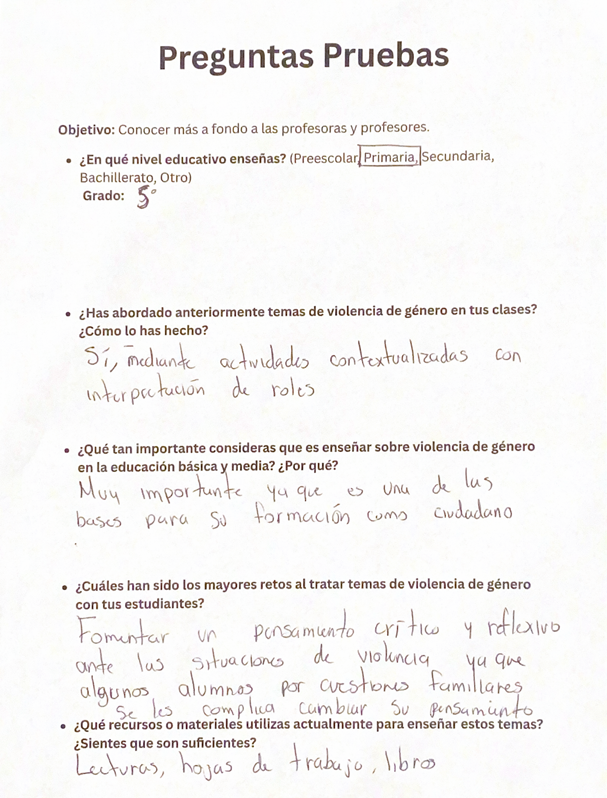 Preguntas Pruebas
Objetivo: Conocer más a fondo a las profesoras y profesores.
• ¿En qué nivel educativo enseñas? (Preescolar, Primaria, Secundaria,
Bachillerato, Otro)
Grado: 5°
• ¿Has abordado anteriormente temas de violencia de género en tus clases?
¿Cómo lo has hecho?
Sí, mediante actividades contextualizadas con
interpretación de roles
• ¿Qué tan importante consideras que es enseñar sobre violencia de género
en la educación básica y media? ¿Por qué?
Muy importante ya que es una de las
bases para su formación como ciudadano
• ¿Cuáles han sido los mayores retos al tratar temas de violencia de género
con tus estudiantes?
Fomentar un pensamiento crítico y reflexivo
ante las situaciones de violencia ya que
algunos alumnos por cuestiones familiares
se les complica cambiar su pensamiento
• ¿Qué recursos o materiales utilizas actualmente para enseñar estos temas?
¿Sientes que son suficientes?
Lecturas, hojas de trabajo, libros